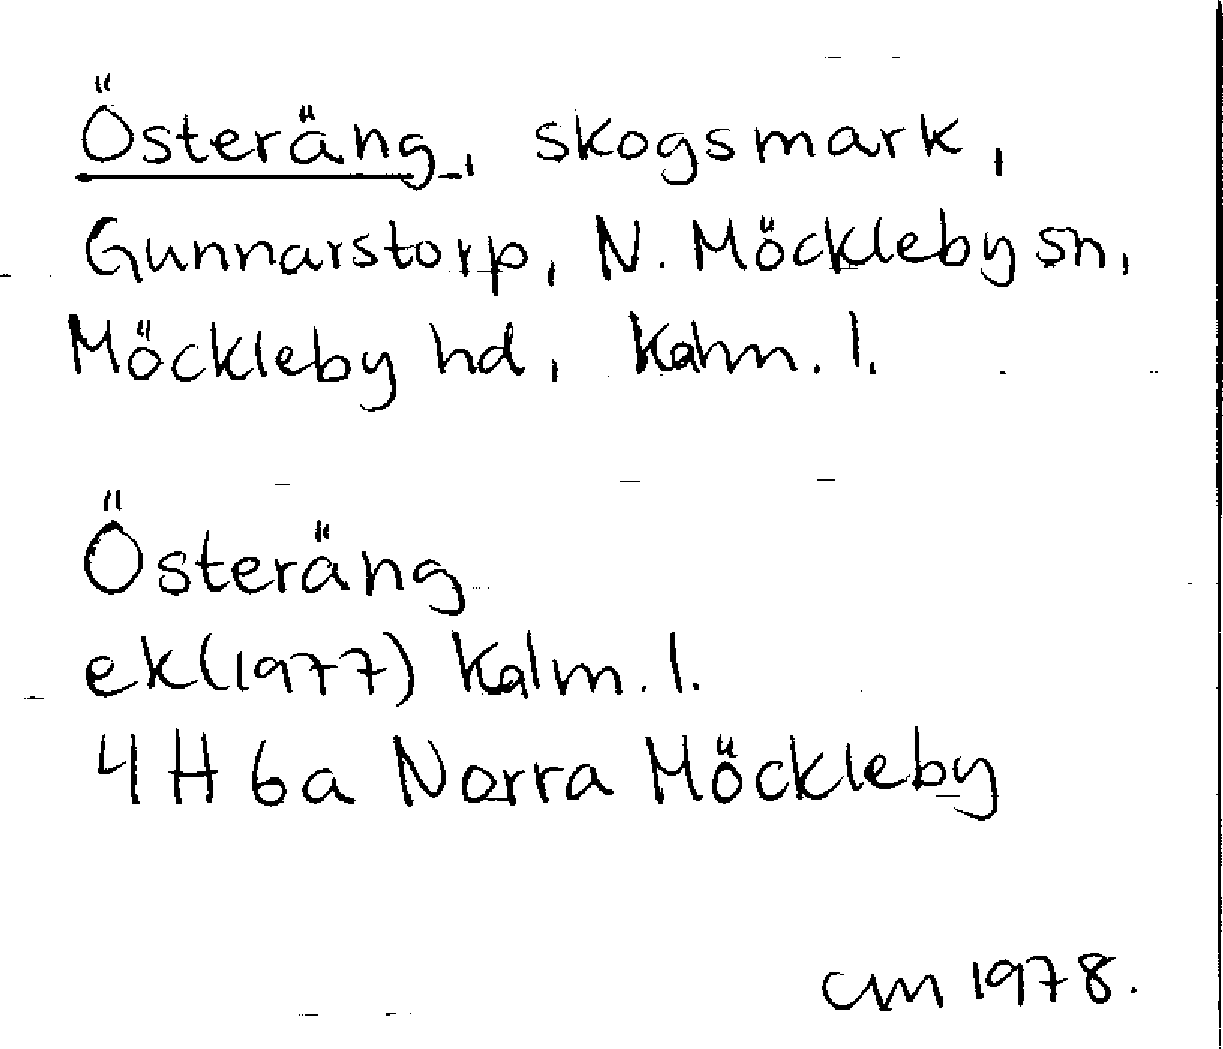 Österäng, skogsmark,
Gunnarstorp, N. Möckleby sn,
Möckleby hd, Kalm. l.
Österäng
ek(1977) Kalm. l.
4 H 6a Norra Möckleby
CM 1978.